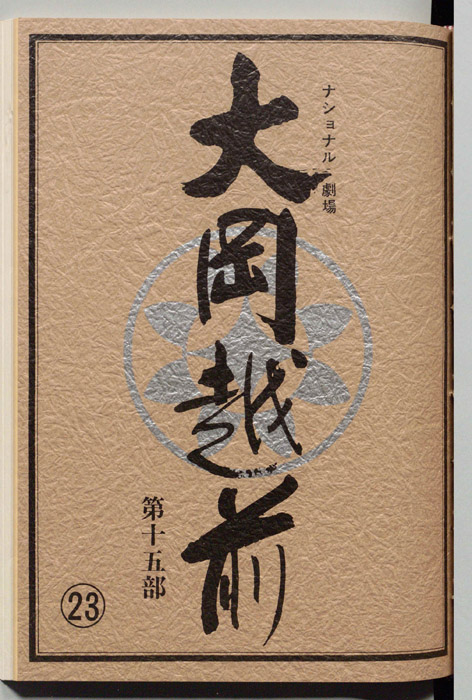 ナショナル劇場
大岡越前
第十五部
23